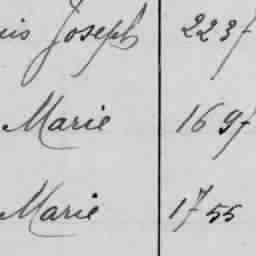 uis Joseph 2237
Marie 1697
Marie 1755